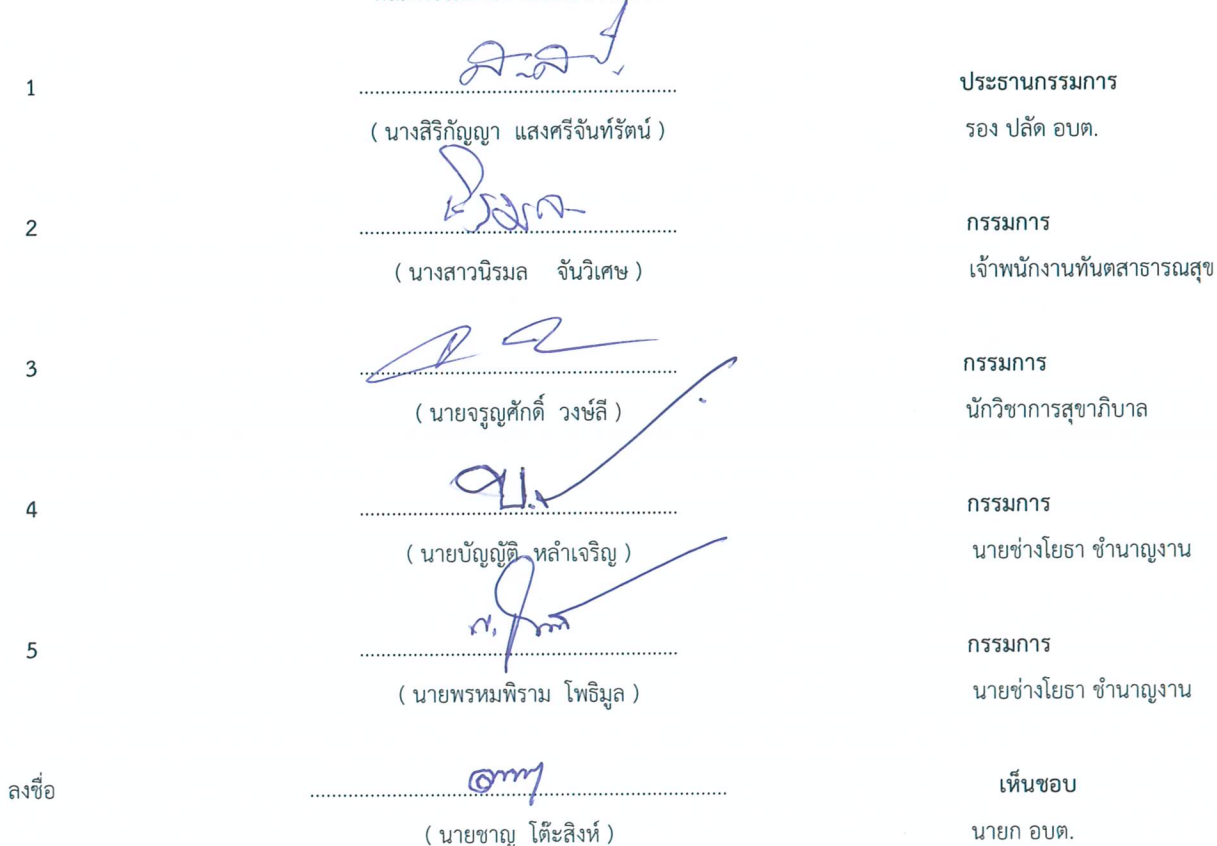 1 ประธานกรรมการ
( นางสิริกัญญา แสงศรีจันท์รัตน์ ) รอง ปลัด อบต.
2 กรรมการ
( นางสาวนิรมล จันวิเศษ ) เจ้าพนักงานทันตสาธารณสุข
3 กรรมการ
( นายจรูญศักดิ์ วงษ์ลี ) นักวิชาการสุขาภิบาล
4 กรรมการ
( นายบัญญัติ หลำเจริญ ) นายช่างโยธา ชำนาญงาน
5 กรรมการ
( นายพรหมพิราม โพธิมูล ) นายช่างโยธา ชำนาญงาน
ลงชื่อ เห็นชอบ
( นายชาญ โต๊ะสิงห์ ) นายก อบต.